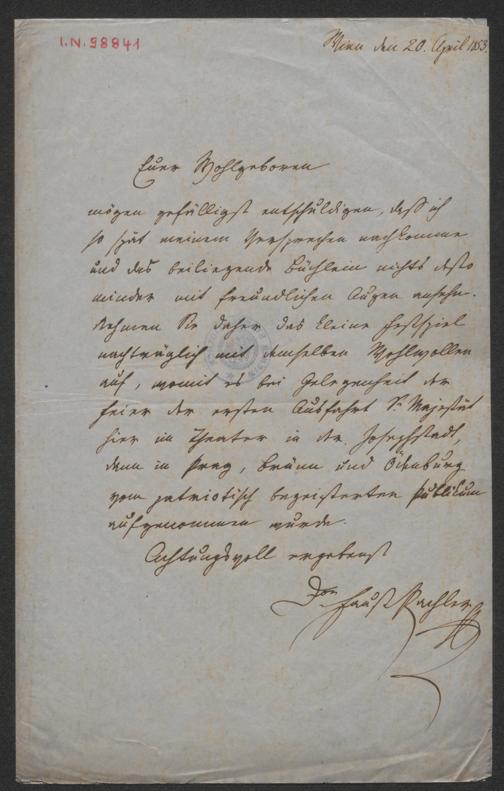 I.N. 98841
Wien den 20. April 1853.
Euer Wohlgeboren
mögen gefälligst entschuldigen, daß ich
so spät meinem Versprechen nachkomme
und das beiliegende Büchlein nichts desto
minder mit freundlichen Augen ansehn.
Nehmen Sie daher das kleine Festspiel
nachträglich mit demselben Wohlwollen
auf, womit es bei Gelegenheit der
Feier der ersten Ausfahrt Sr Majestät
hier im Theater in der Josephstadt,
dann in Prag, Brünn und Ödenburg
vom patriotisch begeisterten Publikum
aufgenommen wurde.
Achtungsvoll ergebenst
Dor Faust Pachler